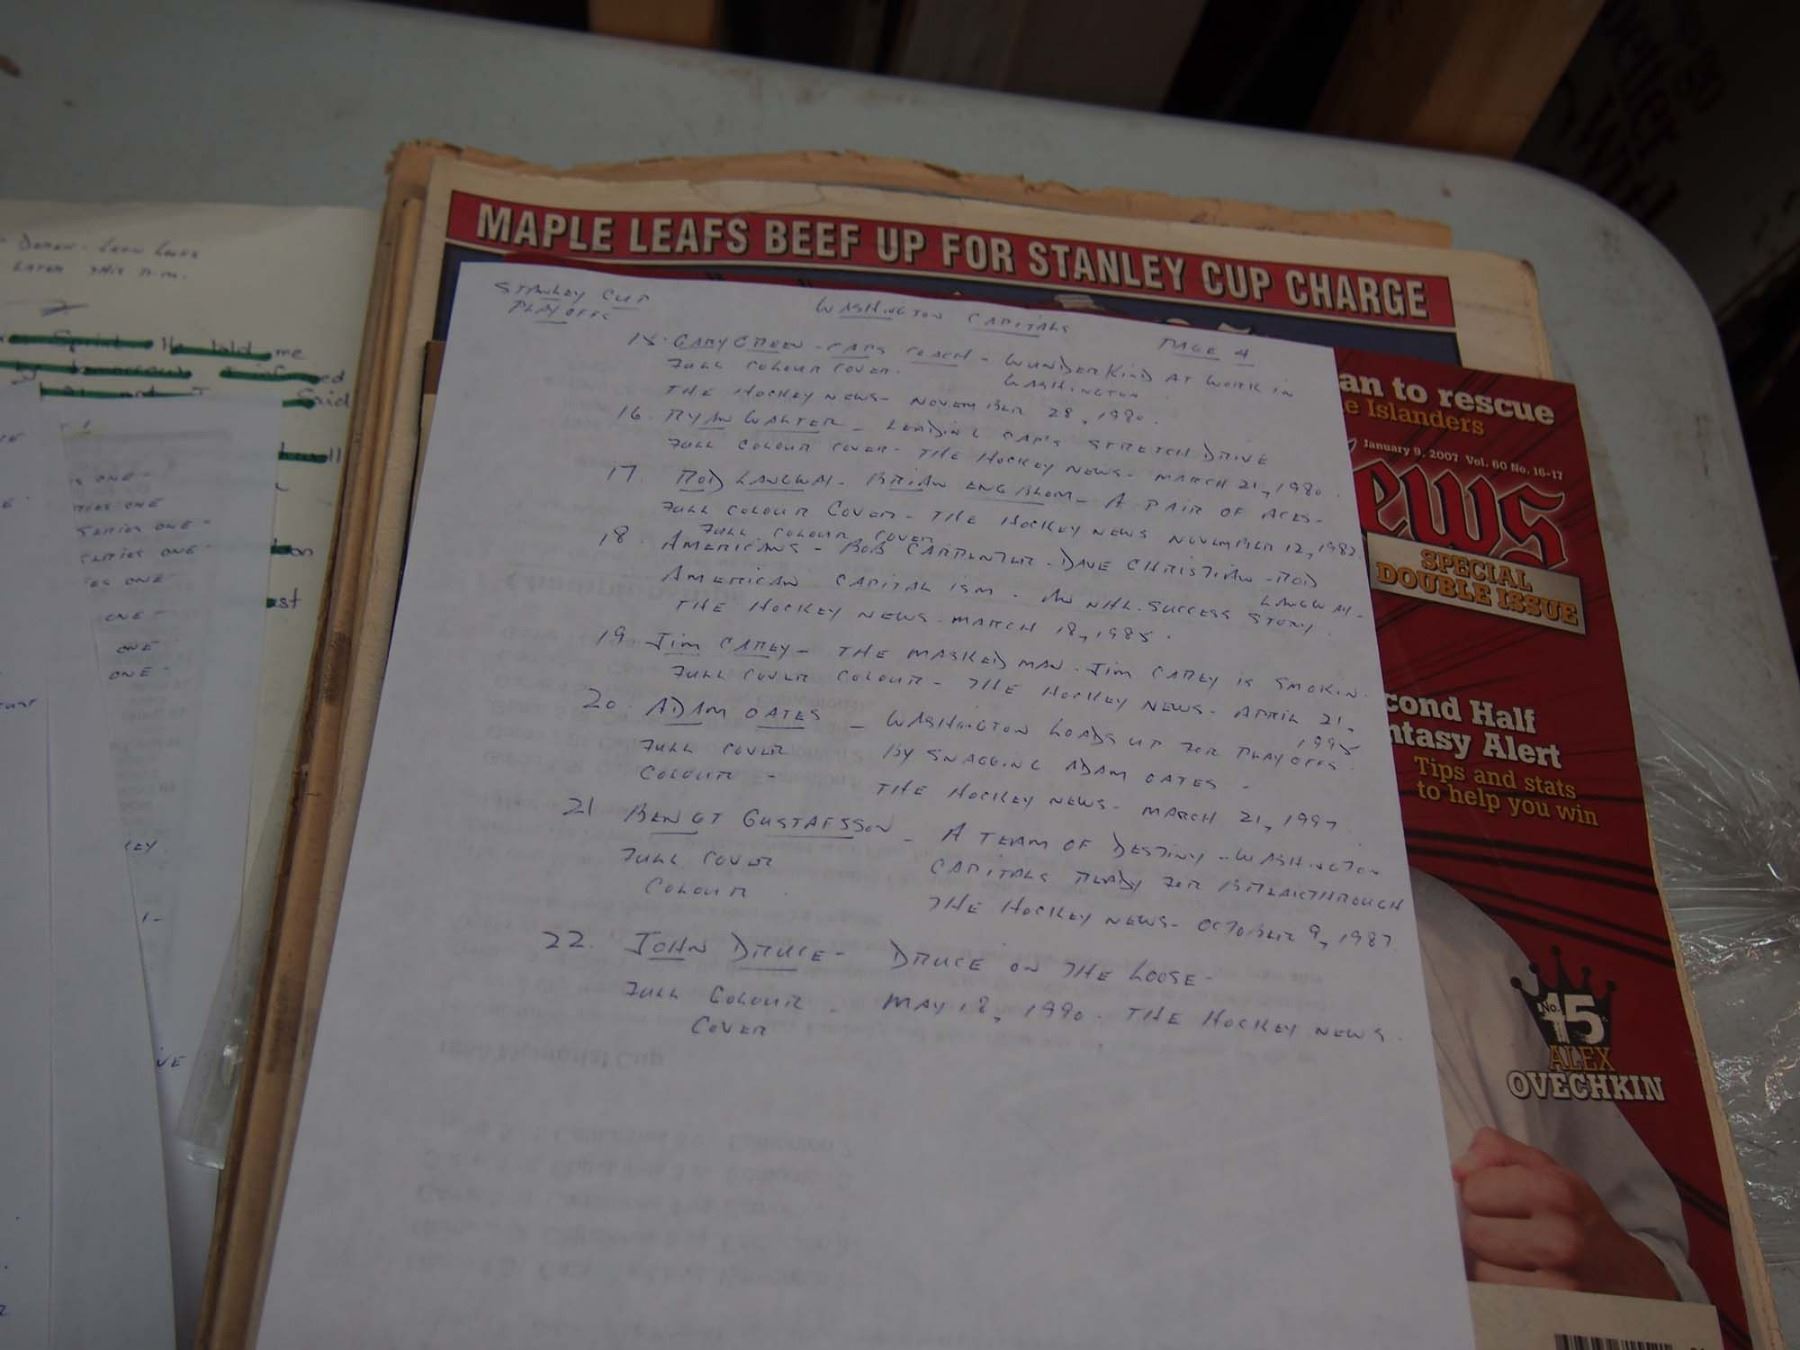 MAPLE LEAFS BEEF UP FOR STANLEY CUP CHARGE
STANLEY CUP
PLAYOFFS
WASHINGTON CAPITALS
PAGE 4
15. GARY GREEN - CAPS COACH - WUNDERKIND AT WORK IN
FULL COLOUR COVER. WASHINGTON.
THE HOCKEY NEWS - NOVEMBER 28, 1980.
16. RYAN WALTER - LEADING CAPS STRETCH DRIVE
FULL COLOUR COVER - THE HOCKEY NEWS - MARCH 21, 1980.
17. ROD LANGWAY - BRIAN ENGBLOM - A PAIR OF ACES -
FULL COLOUR COVER - THE HOCKEY NEWS NOVEMBER 12, 1982
FULL COLOUR COVER
18. AMERICANS - BOB CARPENTER - DAVE CHRISTIAN - ROD
LANGWAY -
AMERICAN CAPITAL ISM - AN NHL SUCCESS STORY.
THE HOCKEY NEWS - MARCH 18, 1985.
19 JIM CAREY - THE MASKED MAN - JIM CAREY IS SMOKIN.
FULL COVER COLOUR - THE HOCKEY NEWS - APRIL 21,
1995
20. ADAM OATES - WASHINGTON LOADS UP FOR PLAYOFFS.
FULL COVER BY SNAGGING ADAM OATES -
COLOUR - THE HOCKEY NEWS - MARCH 21, 1997.
21 BENGT GUSTAFSSON - A TEAM OF DESTINY - WASHINGTON
FULL COVER CAPITALS READY FOR BREAKTHROUGH
COLOUR. THE HOCKEY NEWS - OCTOBER 9, 1987.
22. JOHN DRUCE - DRUCE ON THE LOOSE -
FULL COLOUR. MAY 18, 1990. THE HOCKEY NEWS.
COVER
an to rescue
e Islanders
January 9, 2007 Vol. 60 No. 16-17
ews
SPECIAL
DOUBLE ISSUE
cond Half
ntasy Alert
Tips and stats
to help you win
No. 15
ALEX
OVECHKIN
LATER THIS P.M.
told me
Said
ONE -
ONE
SERIES ONE -
SERIES ONE -
ONE -
ONE -
ONE
ONE -